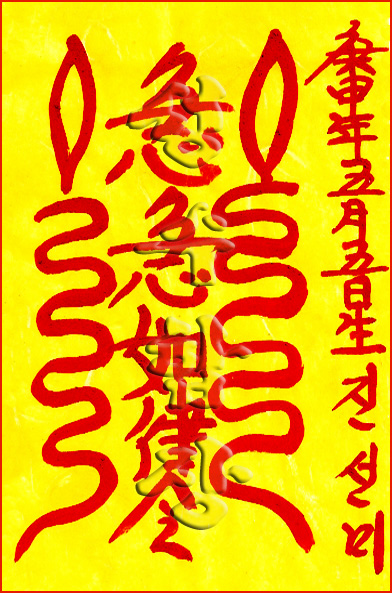 庚申年五月五日生 진선미
急急如律令